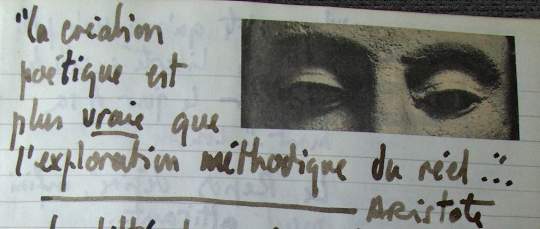 "la création
poétique est
plus vraie que
l'exploration méthodique du réel...
Aristote